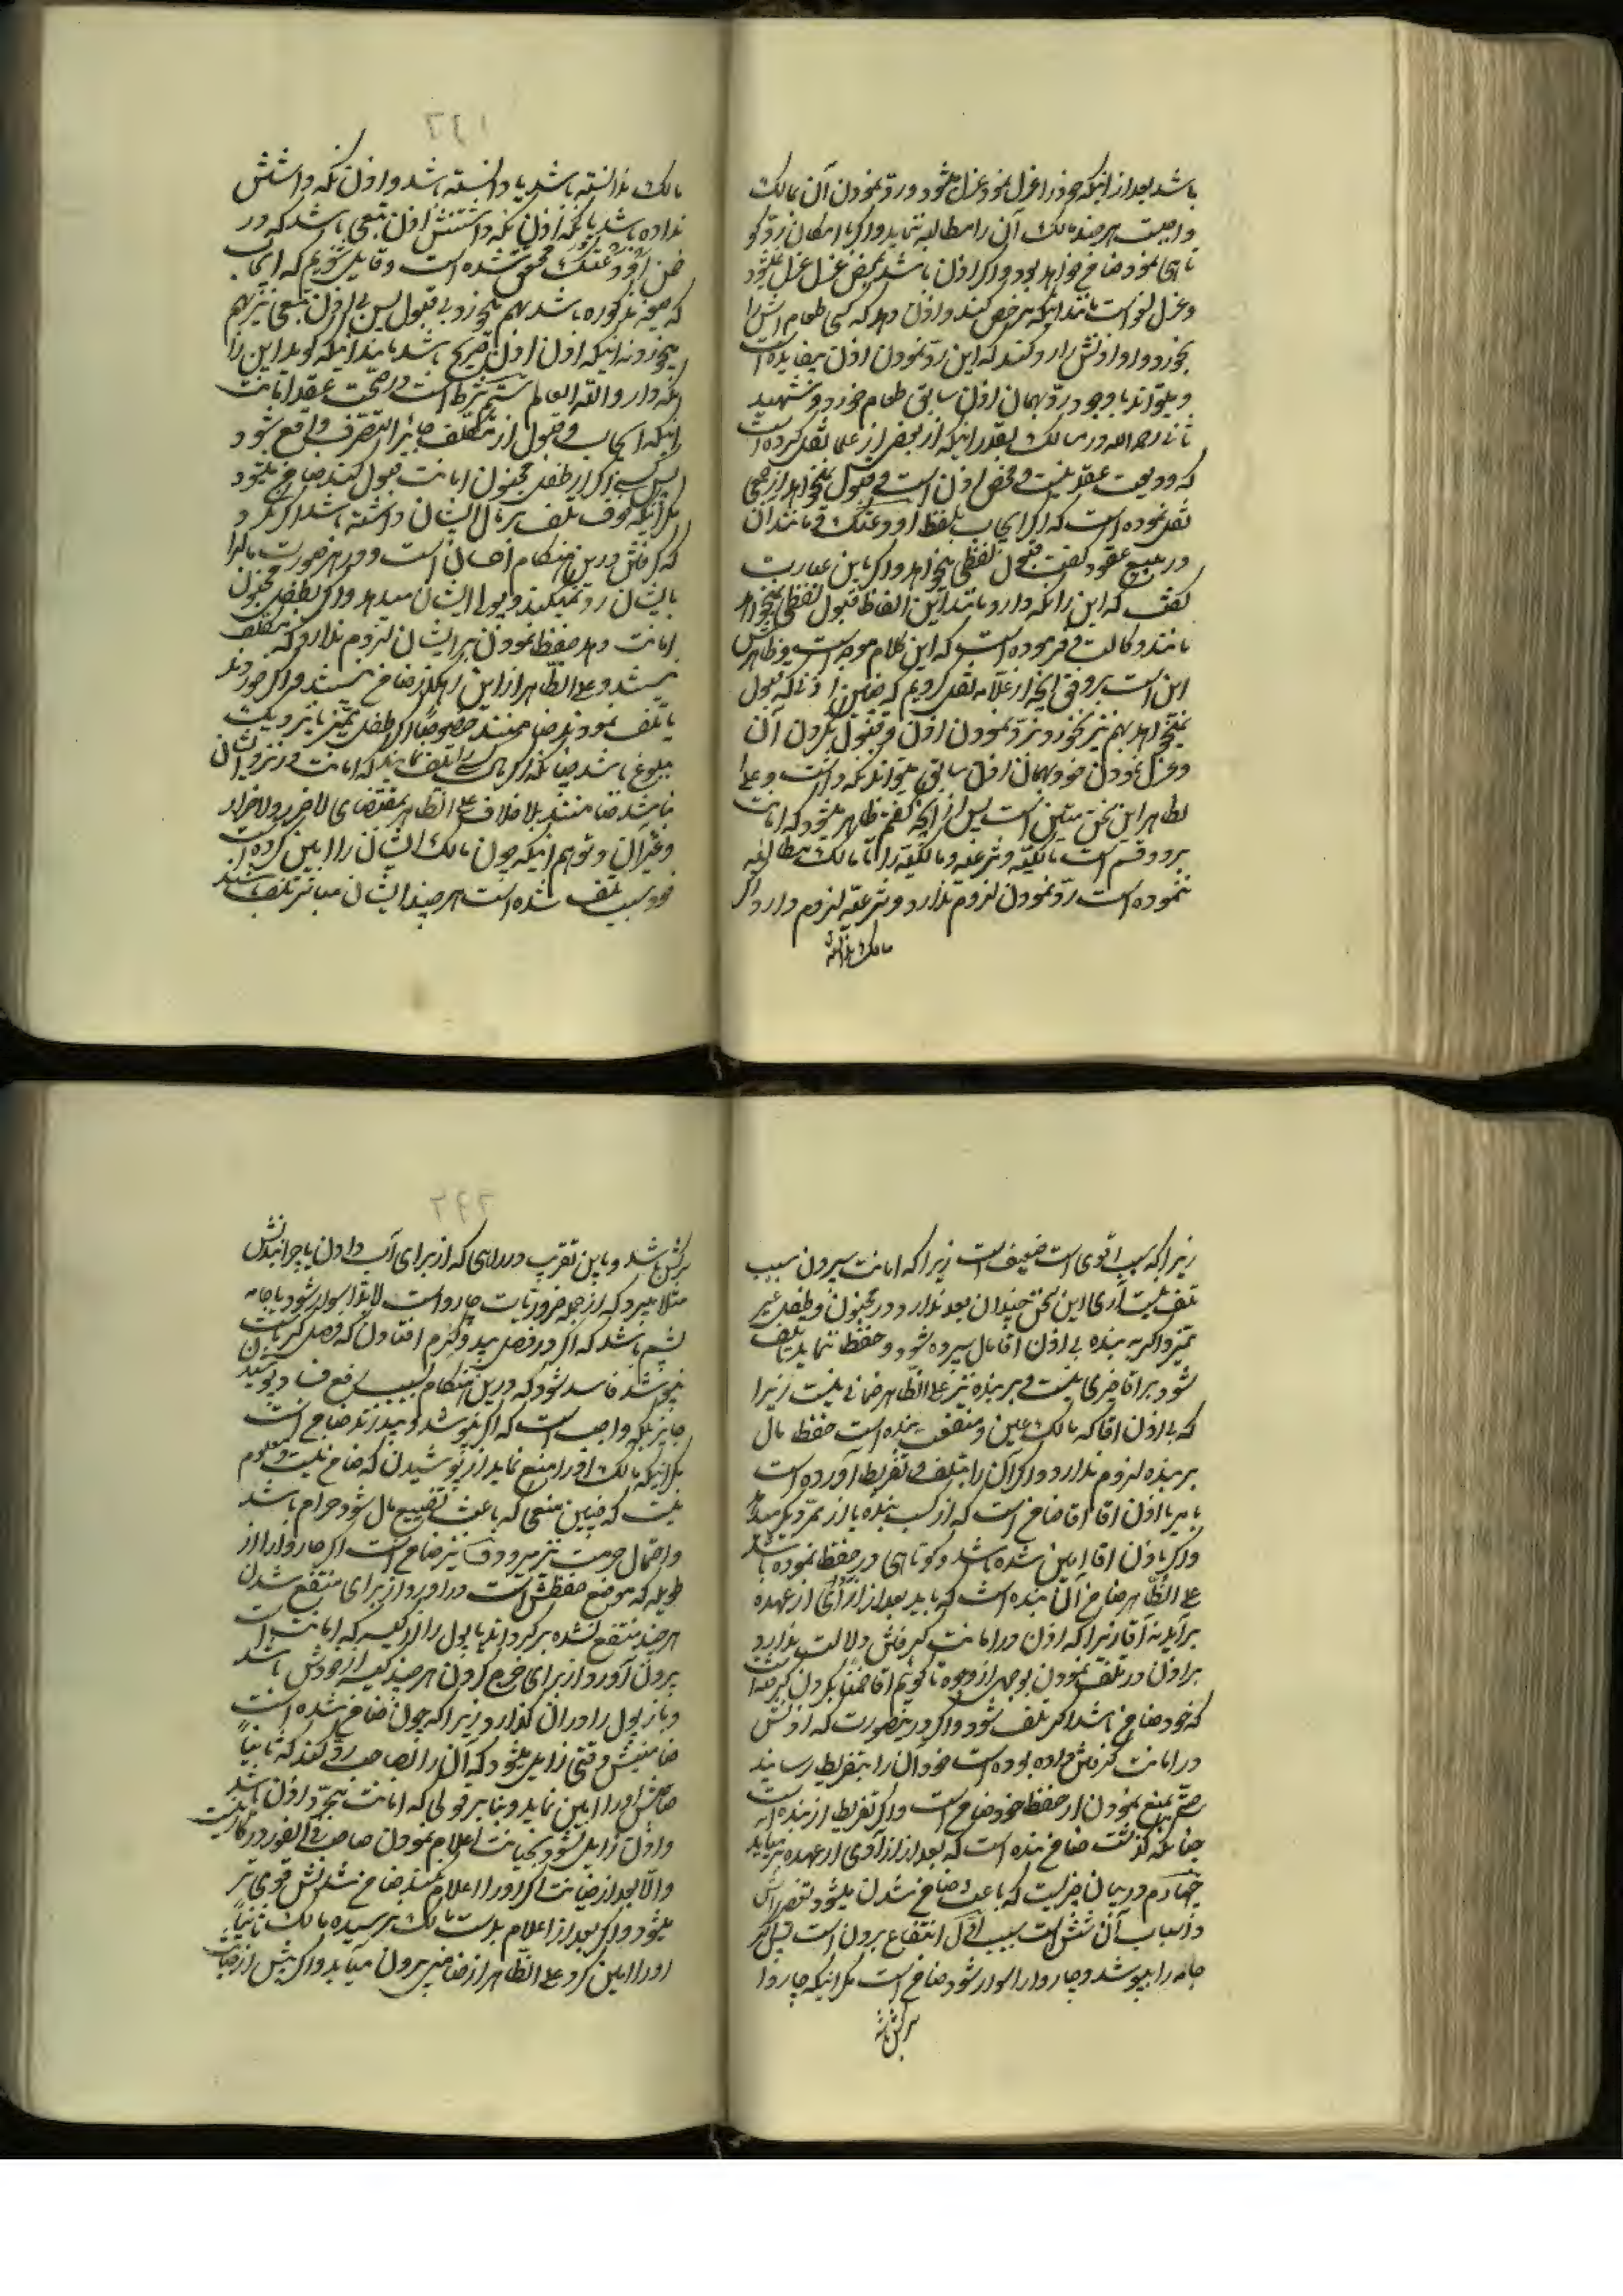 باشد بعد از اینکه خود را عزل نمود عزل میشود و رد نمودن آن بمالک
واجبست هر چند مالک آن را مطالبه ننماید و اگر با امکان رد کو
تاهی نمود ضامن خواهد بود و اگر اذن باشد بمحض عزل عزل نمیشود
و عزل لغو است مانند اینکه شخصی کند و اذن دهد که کسی طعام اش را
بخورد و او اذنش را رد کند که این رد نمودن اذن بیفایده است
و میتواند با وجود رد بهمان اذن سابق طعام خورد و شهید
ثانی رحمه الله در مسالک بقدر اینکه از بعضی از علما نقل کرده است
که ودیعت عقد نیست و محض اذن است و قبول نمیخواهد از بعضی
نقل نموده است که اگر ایجاب بلفظ اودعتک و مانند آن
در جمیع عقود گفت قبول لفظی میخواهد و اگر باین عبارت
گفت که این را نگه دار و مانند این الفاظ قبول لفظی نمیخواهد
مانند وکالت و فرموده است که این کلام موجه است و ظاهرش
این است بر وفق آنچه از علامه نقل کردیم که ضمن اذنی که قبول
نمیخواهد بهم نمیخورد و برد نمودن اذن و قبول نکردن آن
و عزل نمودن خود بهمان اذن سابق میتواند نگه داشت و علی
الظاهر این سخن متین است پس از آنچه گفتیم ظاهر میشود که امانت
بر دو قسم است مالکیه و شرعیه و مالکیه را تا مالک مطالبه
ننموده است رد نمودن لزوم ندارد و شرعیه لزوم دارد اگر
مالک ندانسته
۲۹۱
مالک ندانسته باشد یا دانسته باشد و اذن نگه داشتنش
نداده باشد یا نگه اذن نگه داشتنش اذن تبعی باشد که در
ضمن اودعتک محقق نشده است و قایل شویم که ایجاب
که صیغه مذکوره باشد بهم میخورد بی قبول پس بی اذن تبعی نیز بهم
میخورد نه اینکه اذن اذن صریح باشد مانند اینکه گوید این را
نگه دار و الله العالم شرط است در صحت عقد امانت
اینکه ایجاب و قبول از مکلف جایز التصرف واقع شود
پس کسی اگر از طفل مجنون امانت قبول کند ضامن میشود
مگر اینکه خوف تلف بر مال ایشان داشته باشد اگر نگیرد
که گرفتن درین هنگام احسان است و در هر صورت مال را
بایشان رد نمیکند و بولی ایشان میدهد و اگر بطفل مجنون
امانت دهد حفظ نمودن بر ایشان لزوم ندارد که مکلف
نیستند و علی الظاهر از این رهگذر ضامن نیستند و اگر خوردند
یا تلف نمودند ضامنند خصوصا اگر طفل ممیز یا نزدیک
ببلوغ باشد چنانکه اگر مال کسی را تلف نمایند که امانت در نزد ایشان
نباشد ضامنند بلا خلاف علی الظاهر بمقتضای لا ضرر و لا ضرار
و غیر آن و توهم اینکه چون مالک ایشان را امین کرده است
خود سبب تلف شده است هر چند ایشان مباشر تلف باشند
زیرا که سبب اقوی است ضعیف است زیرا که امانت سپردن سبب
تلف نیست آری این سخن چندان بعد ندارد در مجنون و طفل غیر
ممیز و اگر به بنده بی اذن آقا مال سپرده شود و حفظ ننماید یا تلف
شود بر آقا چیزی نیست و بر بنده نیز علی الظاهر ضمانی نیست زیرا
که بی اذن آقا که مالک عین و منفعت بنده است حفظ مال
بر بنده لزوم ندارد و اگر آن را بتلف و تفریط آورده است
یا بر با اذن آقا آقا ضامن است که از کسب بنده یا از ممر دیگر میدهد
و اگر باذن آقا امین شده باشد و کوتاهی در حفظ نموده باشد
علی الظاهر ضامن آن بنده است که باید بعد از آزادی از عهده
برآید نه آقا زیرا که اذن در امانت گرفتن دلالت ندارد
بر اذن در تلف نمودن بوجهی از وجوه تا گوئیم آقا ضمنا بگردن گرفته است
که خود ضامن باشد اگر تلف شود و اگر در ینصورت که اذنش
در امانت گرفتن داده بوده است خود آن را بتفریط رسانید
حتی بمنع نمودن از حفظ خود ضامن است و اگر تفریط از بنده است
چنانکه گذشت ضامن بنده است که بعد از آزادی از عهده بر میآید
چهارم در بیان چیزیست که باعث ضامن شدن میشود تفریطش
و اسباب آن شش است سبب اول انتفاع بردن است پس اگر
جامه را بپوشد و چاروا را سوار شود ضامن است مگر اینکه چاروا
سرکش باشد
۲۹۲
سرکش باشد و باین تقریب در راهی که از برای آب دادن یا چرانیدنش
مثلا میبرد که از جمله ضروریات چارواست لابدا سوار شود یا جامه
پشم باشد که اگر در فصل بید و کرم افتادن که فصل گرماست آن
نپوشد فاسد شود که درین هنگام بسبب رفع فساد پوشید
جایز بلکه واجب است که اگر نپوشد و بید زند ضامن است
مگر اینکه مالک او را منع نماید از پوشیدن که ضامن نیست و معلوم
نیست که چنین منعی که باعث تضییع مال شود حرام باشد
و احتمال حرمت نیز میرود و نیز ضامن است اگر چاروا را از
طویله که موضع حفظش است در آورد از برای منتفع شدن
هر چند منتفع نشده برگرداند یا پول را از کیسه که امانت است
برون آورد از برای خرج کردن هر چند کیسه از خودش باشد
و باز پول را در آن گذارد زیرا که چون ضامن شده است
ضامنیش وقتی زایل میشود که آن را بصاحب رد کند که ثانیا
صاحبش او را امین نماید و بنا بر قولی که امانت مجرد اذن باشد
و اذن زایل نشود بخیانت اعلام نمودن صاحب فی الفور در کار نیست
و الا بعد از خیانت اگر او را اعلام نکند ضامن شدنش قوی تر
میشود و اگر بعد از اعلام بدست مالک نرسیده مالک ثانیا
او را امین کرد علی الظاهر از ضامنی برون میآید و اگر پیش از خیانت